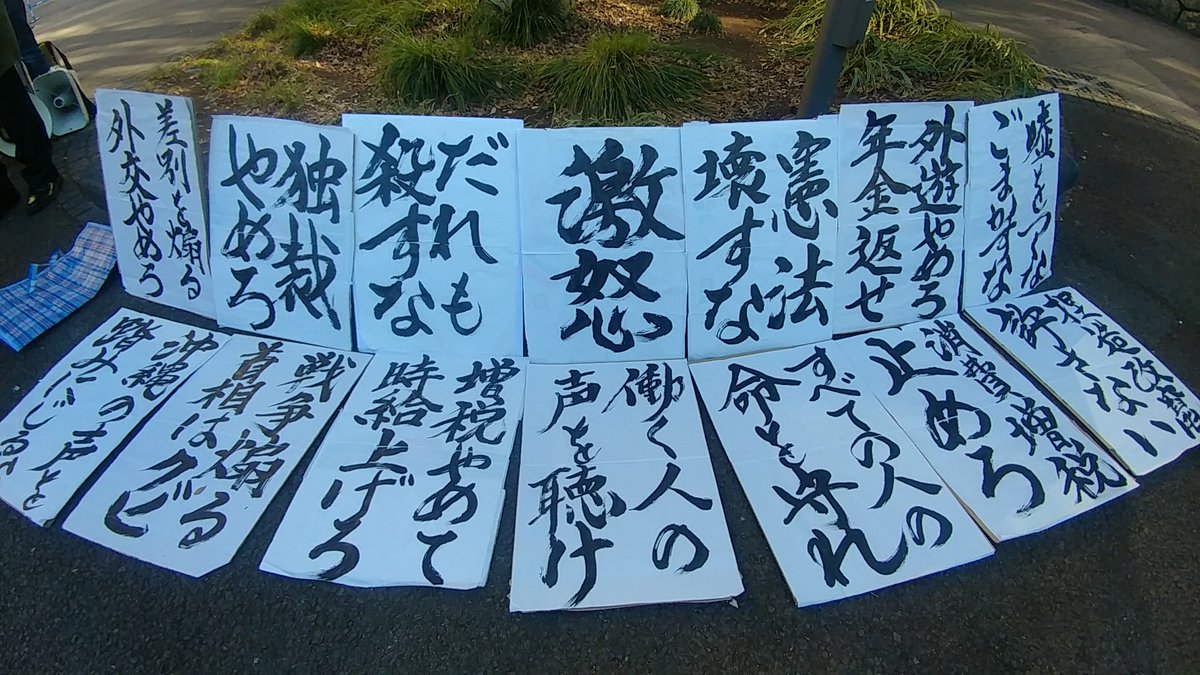 差別を煽る
外交やめろ
独裁
やめろ
だれも
殺すな
激怒
憲法
壊すな
外遊やめろ
年金返せ
嘘をつくな
ごまかすな
沖縄の声を
踏みにじるな
戦争煽る
首相はクビ
増税やめて
時給上げろ
働く人の
声を聴け
すべての人の
命を守れ
消費増税
止めろ
捏造改竄
許さない